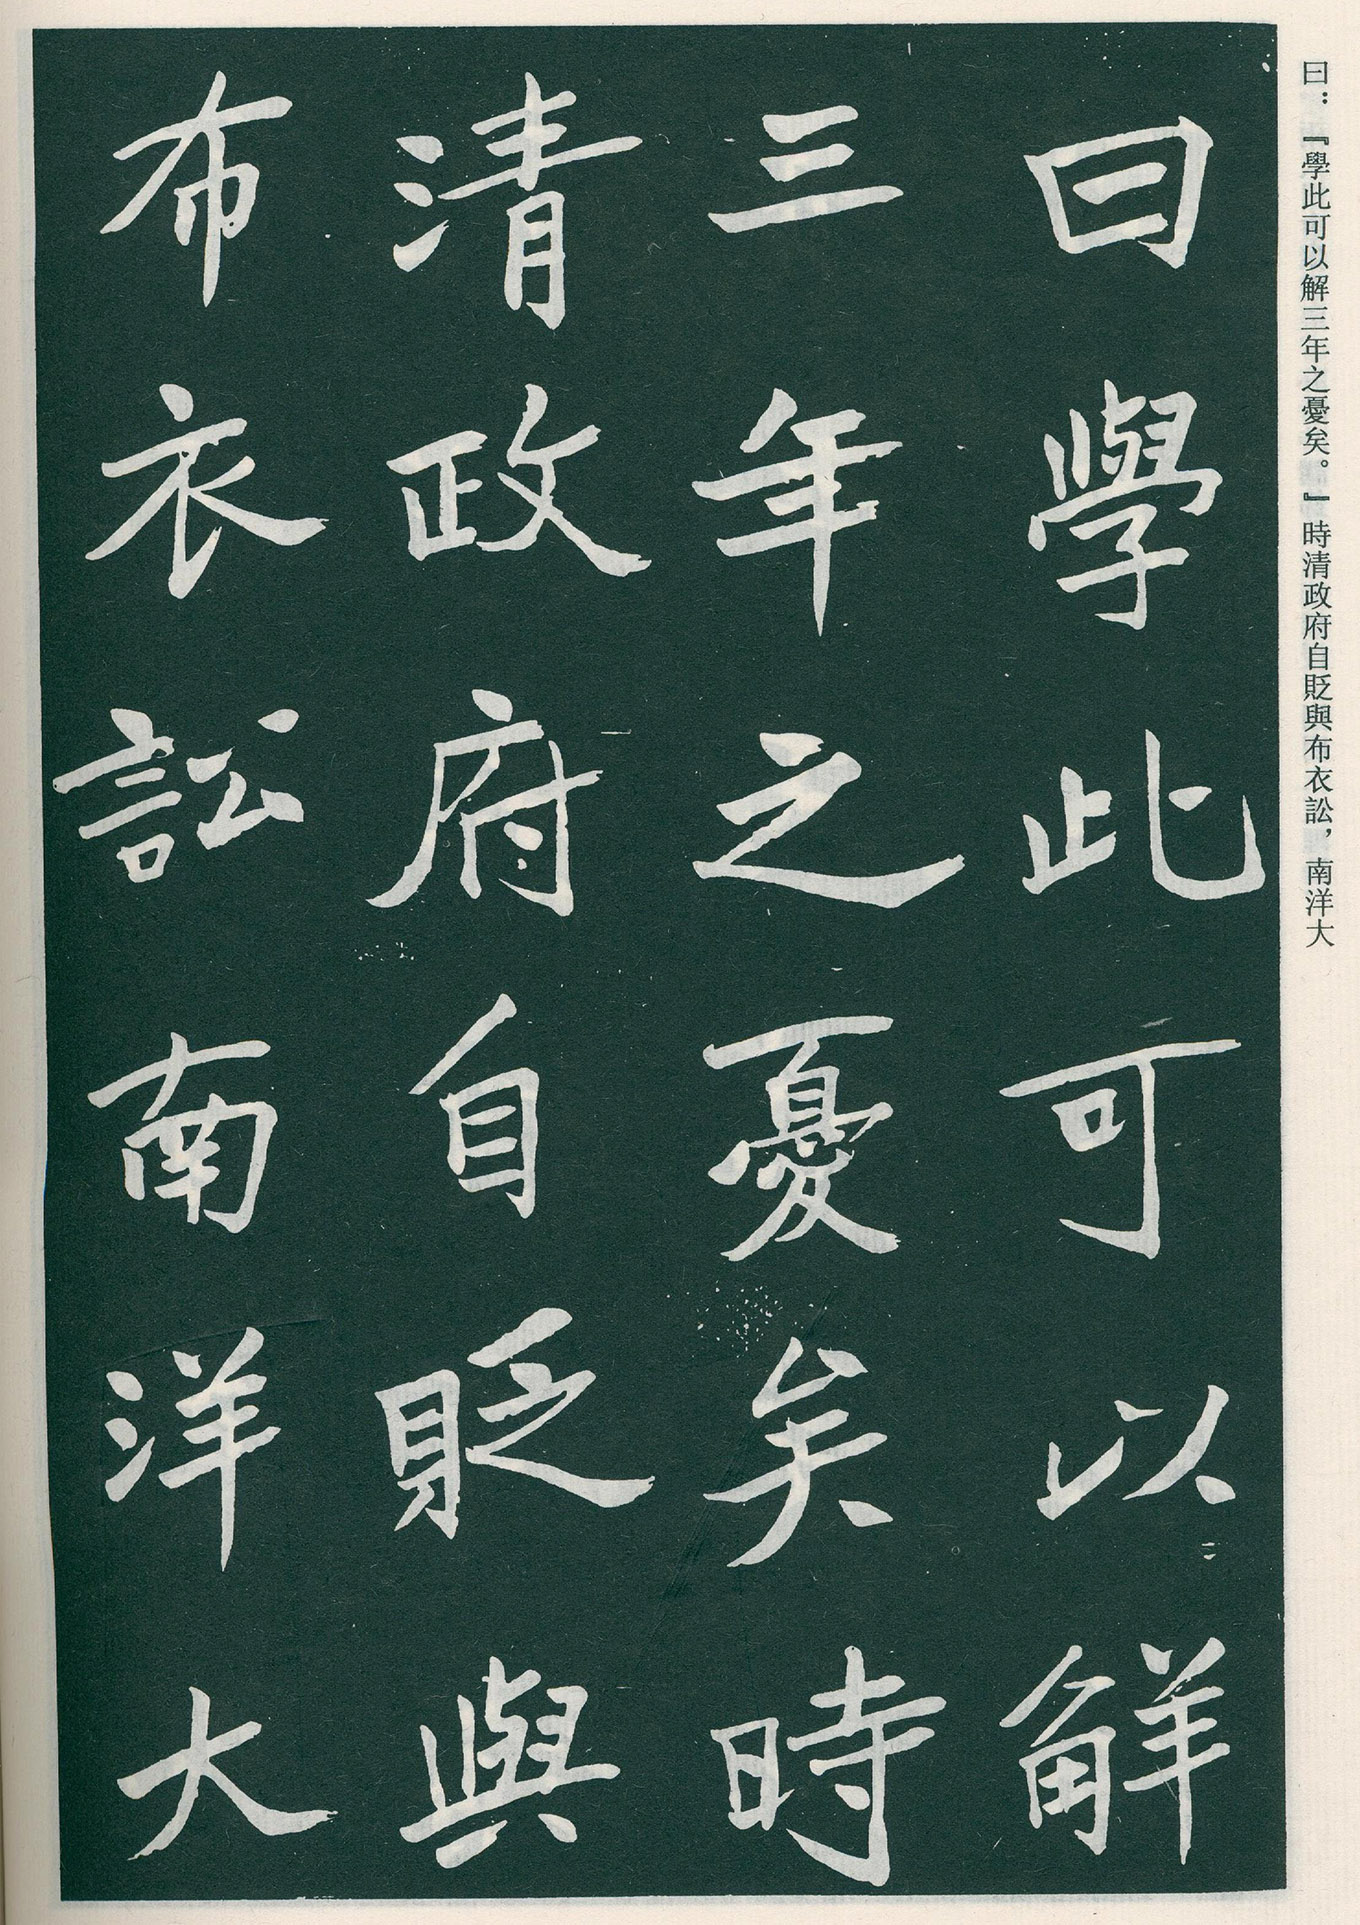 曰：『學此可以解三年之憂矣。』時清政府自貶與布衣訟，南洋大
曰學此可以解
三年之憂矣時
清政府自貶與
布衣訟南洋大